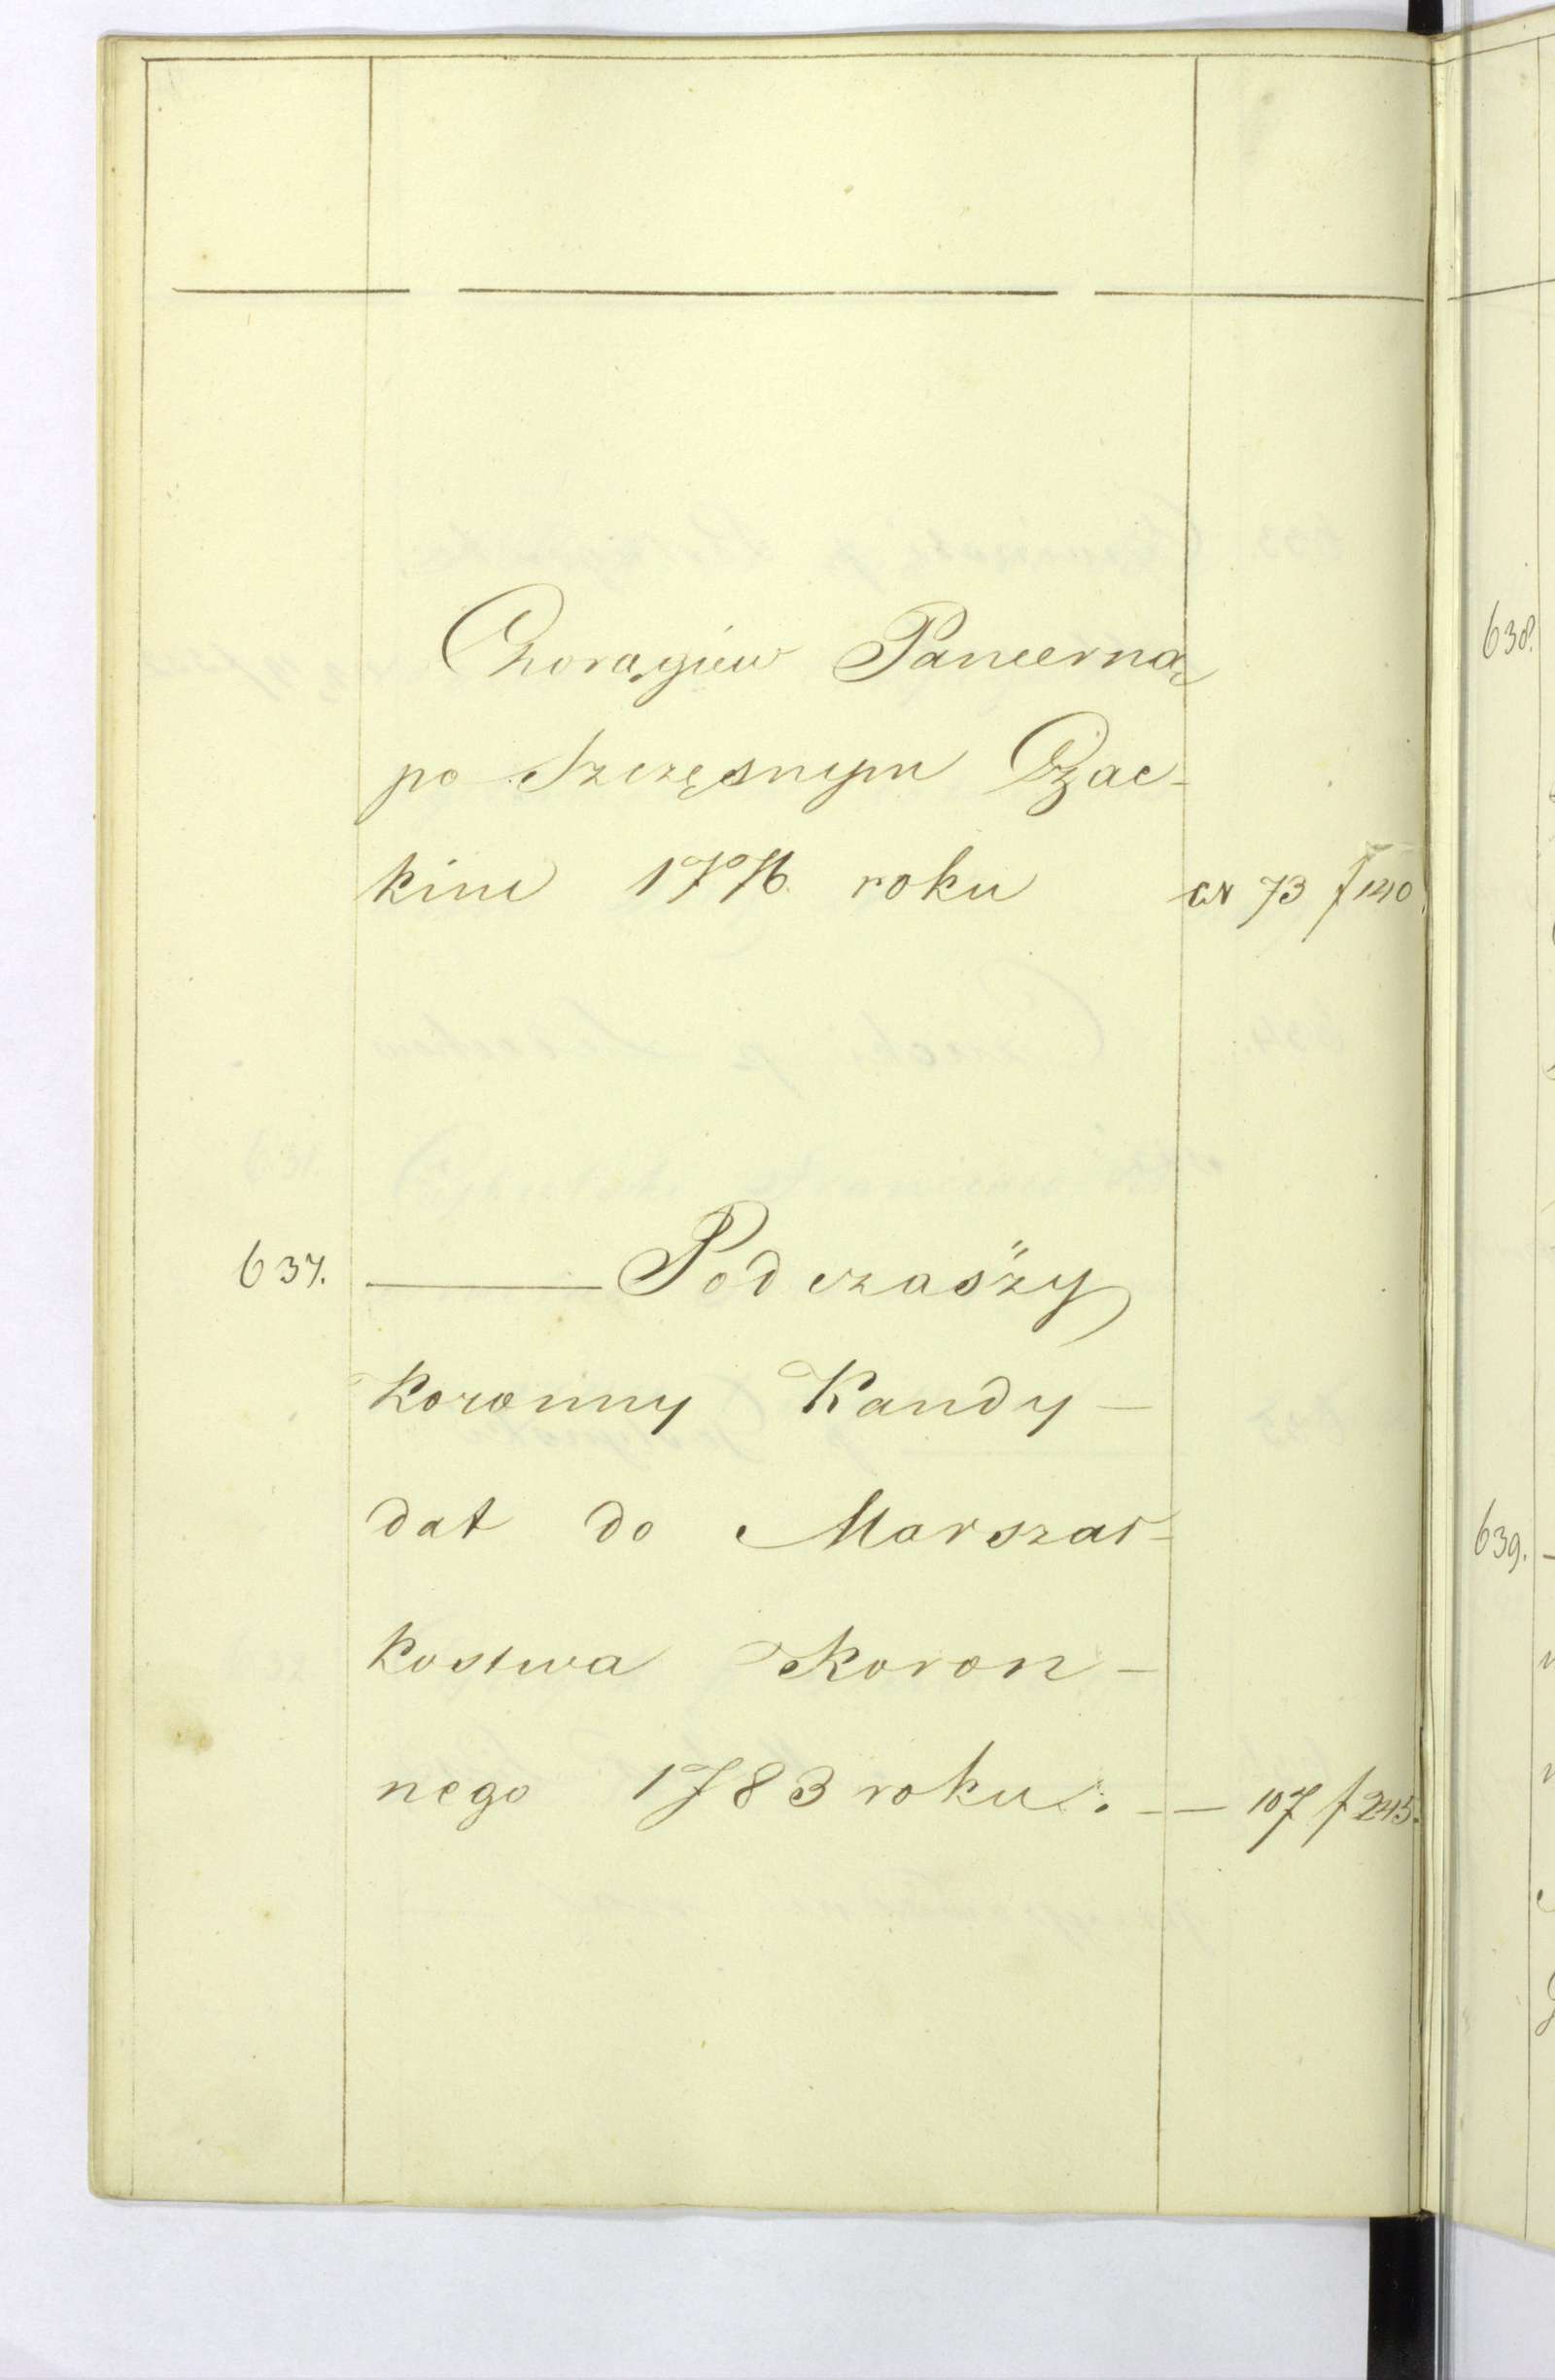 Chorągiew Pancerną
po Szczęsnym Czac-
kim 1776. roku N 73 f 140.
637. ——— Podczaszy
Koronny Kandy-
dat do Marszał-
kostwa Koron-
nego 1783 roku. — — 107 f 245.
638.
639.